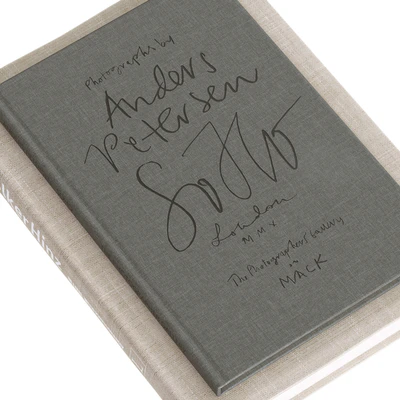 Photographs by
Anders
Petersen
SoHo
London
M M X
The Photographers' Gallery
MACK